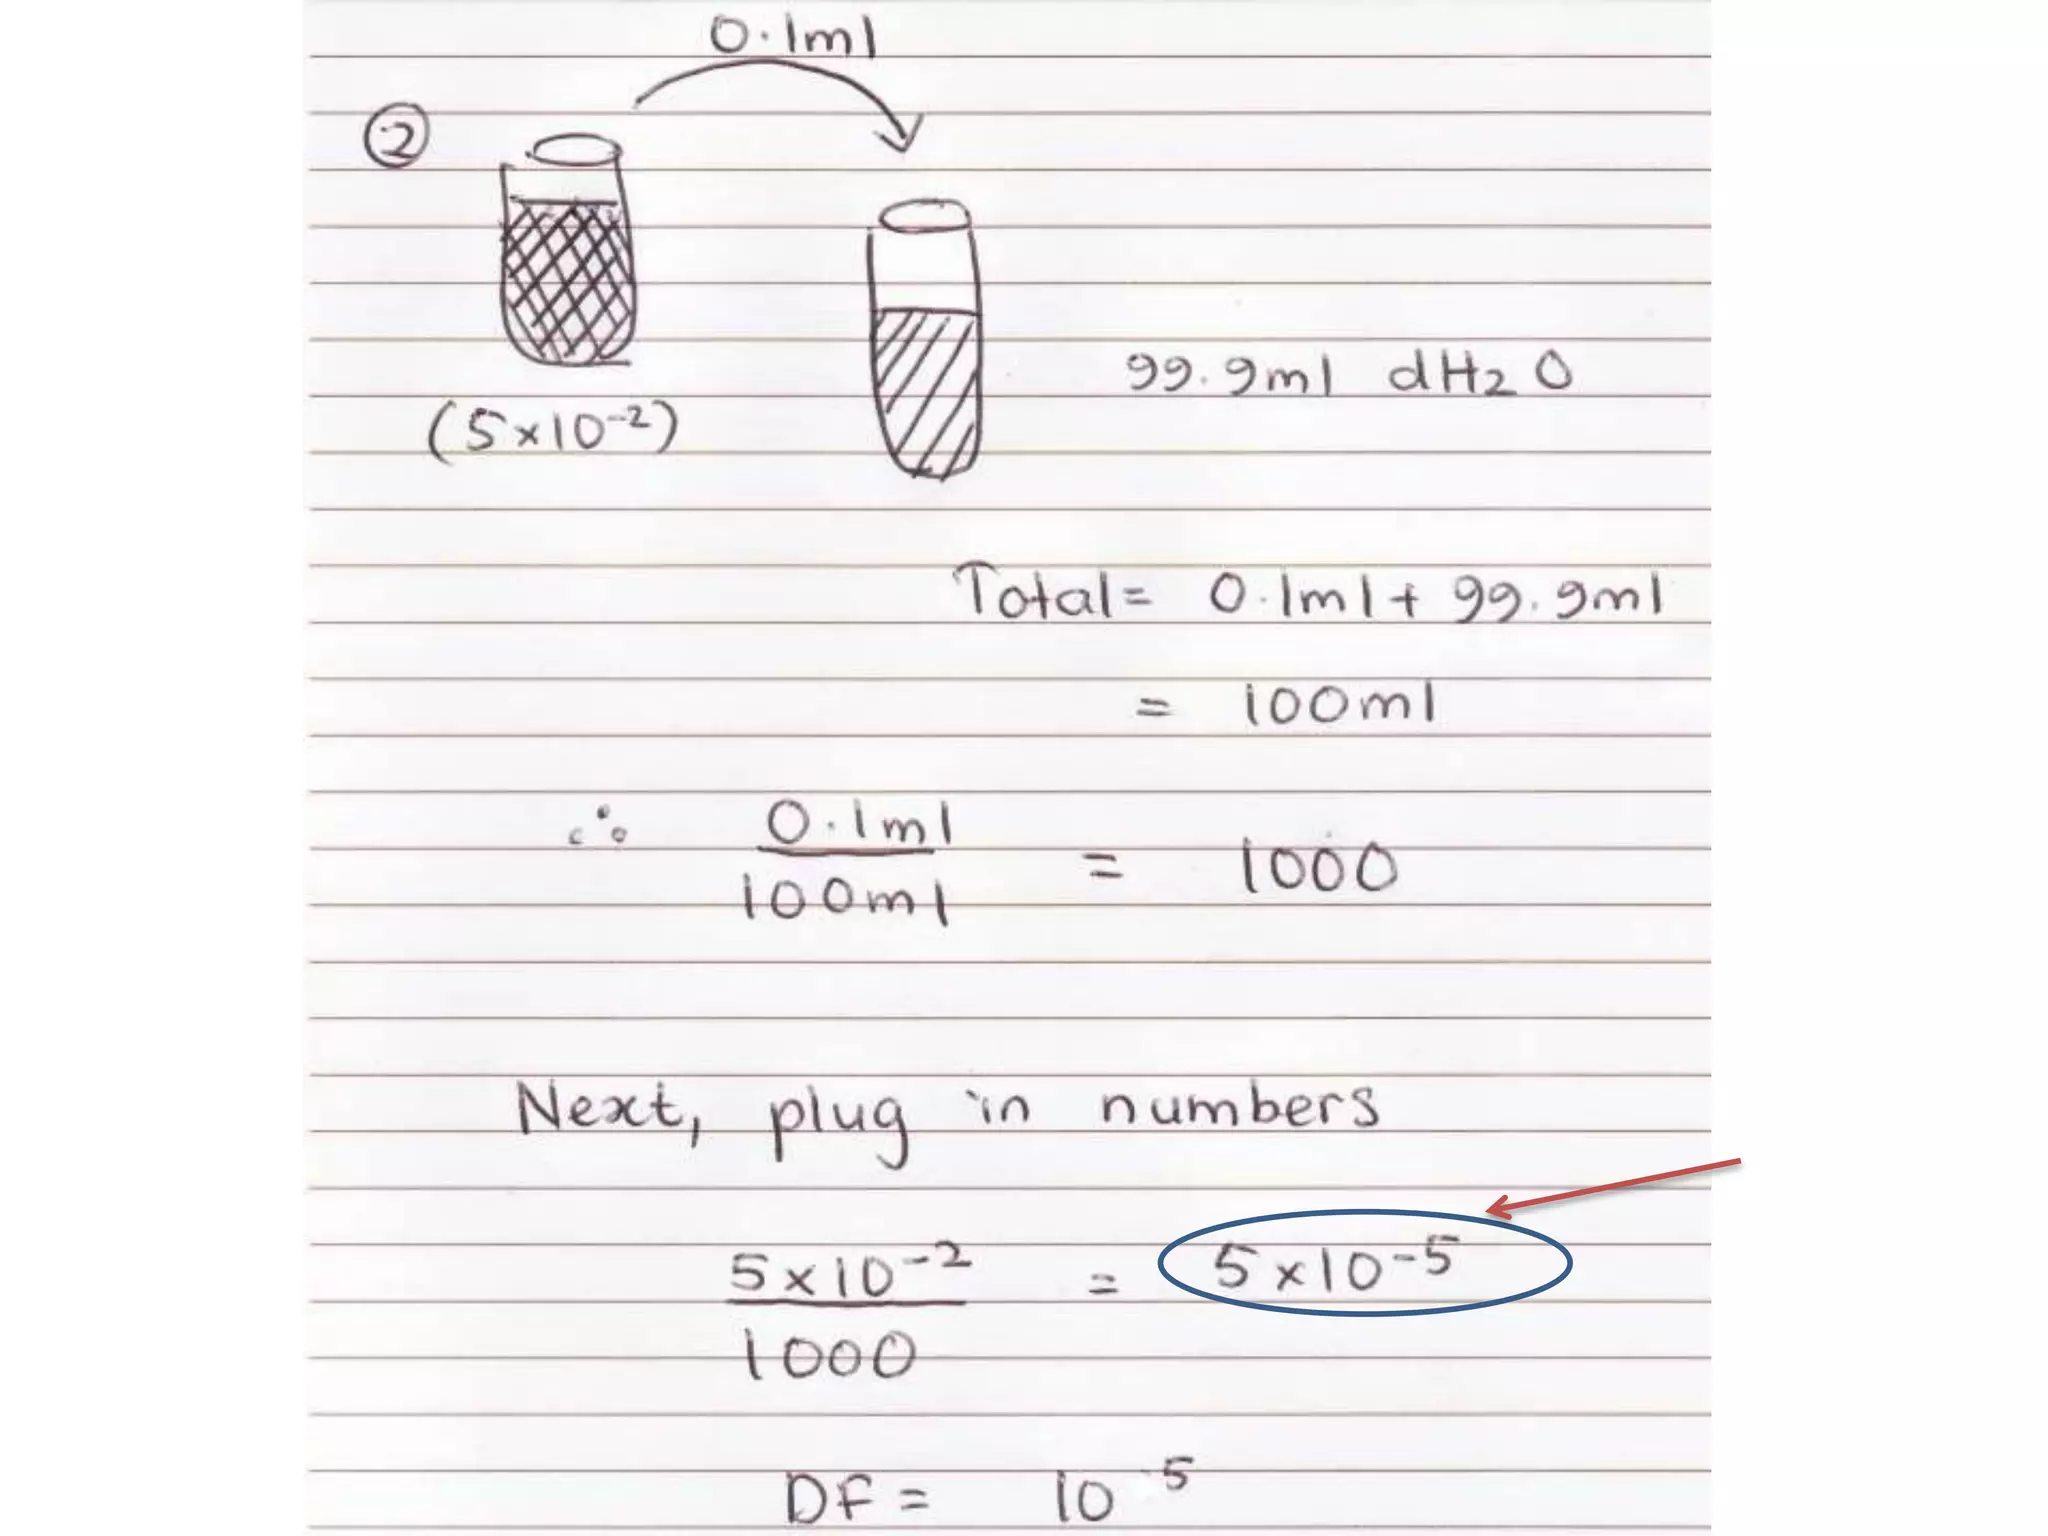 0.1ml
②
99.9ml dH2O
(5×10⁻²)
Total = 0.1ml + 99.9ml
= 100ml
∴ 0.1ml
100ml
= 1000
Next, plug in numbers
5×10⁻²
1000
= 5×10⁻⁵
DF = 10⁻⁵